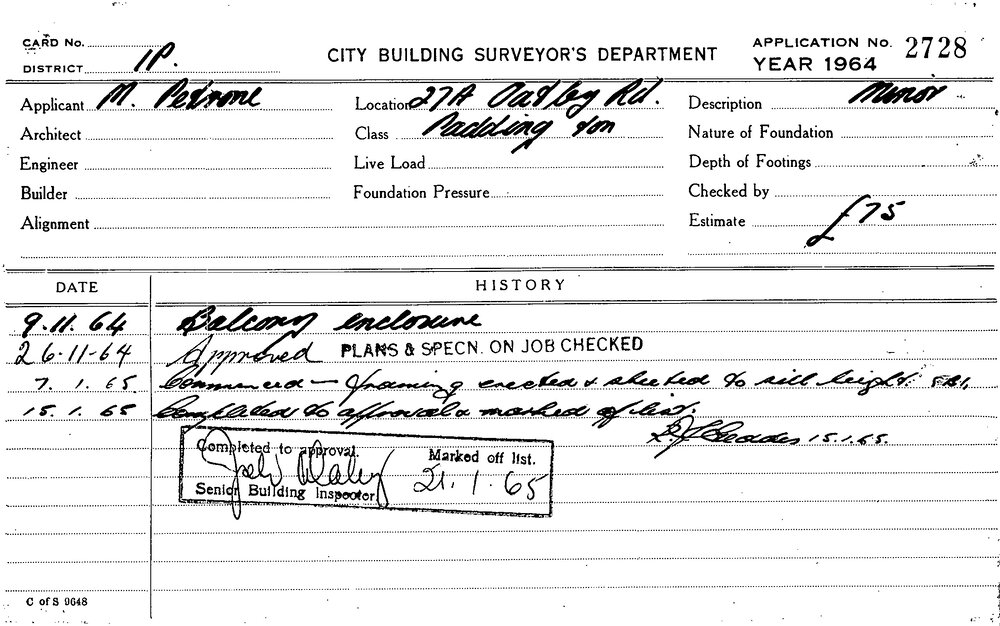 CARD No.
DISTRICT 1P.
CITY BUILDING SURVEYOR'S DEPARTMENT
APPLICATION No. 2728
YEAR 1964
Applicant M. Petrone Location 27A Oatley Rd. Description Minor
Architect Class Paddington Nature of Foundation
Engineer Live Load Depth of Footings
Builder Foundation Pressure Checked by
Alignment Estimate £75
DATE HISTORY
9.11.64 Balcony enclosure
26-11-64 Approved PLANS & SPECN. ON JOB CHECKED
7.1.65 Commenced - framing erected & sheeted to sill height.
15.1.65 Completed to approval & marked off list.
15.1.65.
Completed to approval. Marked off list.
21.1.65
Senior Building Inspector
C of S 9648